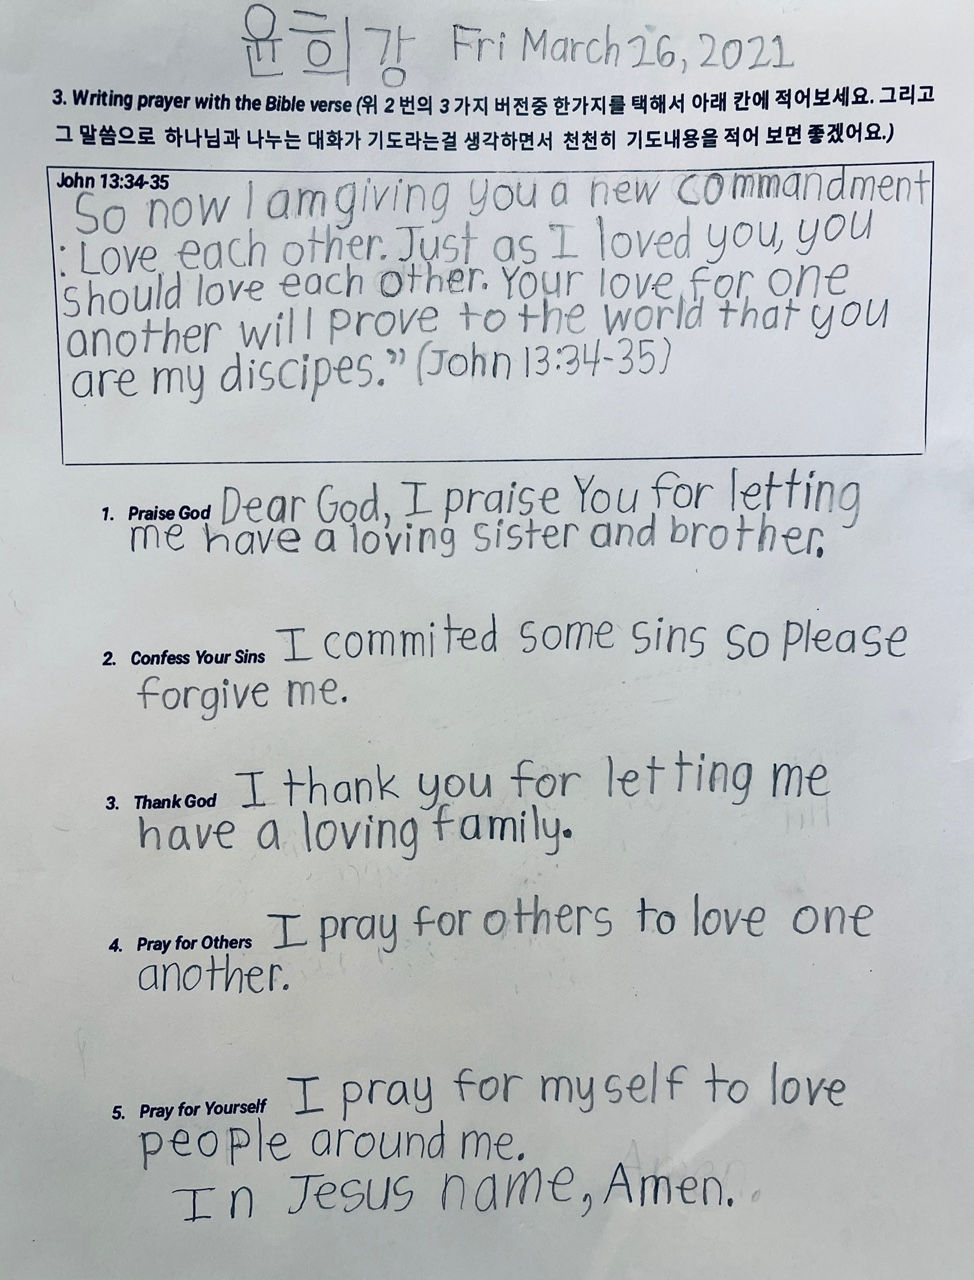 윤희강 Fri March 26, 2021
3. Writing prayer with the Bible verse (위 2 번의 3 가지 버전중 한가지를 택해서 아래 칸에 적어보세요. 그리고
그 말씀으로 하나님과 나누는 대화가 기도라는걸 생각하면서 천천히 기도내용을 적어 보면 좋겠어요.)
John 13:34-35
So now I am giving you a new commandment
: Love each other. Just as I loved you, you
should love each other. Your love for one
another will prove to the world that you
are my discipes.” (John 13:34-35)
1. Praise God Dear God, I praise You for letting
me have a loving sister and brother.
2. Confess Your Sins I commited some sins so please
forgive me.
3. Thank God I thank you for letting me
have a loving family.
4. Pray for Others I pray for others to love one
another.
5. Pray for Yourself I pray for myself to love
people around me.
In Jesus name, Amen.